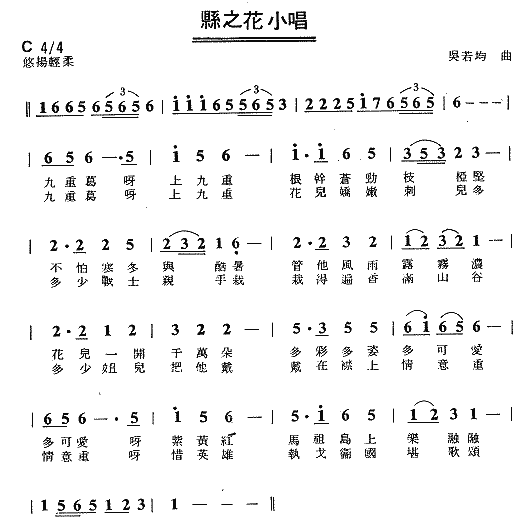 縣之花小唱
C 4/4
悠揚輕柔
吳若均 曲
‖ 1665 6565 6 | i i i 1 6 5 6 5 6 5 | 2225 i7 6565 | 6 - - - |
| 6 5 6 - · 5 | i 5 6 - | i · i 6 5 | 3 5 3 2 3 - |
九重葛呀 上九重 根幹蒼勁 枝椏堅
九重葛呀 上九重 花兒嬌嫩 刺兒多
| 2 · 2 2 5 | 2 3 2 1 6 · | i · 2 3 3 | 1 2 3 2 1 - |
不怕寒冬 與酷暑 管他風雨 露霧濃
多少戰士 親手栽 栽得遍香 滿山谷
| 2 · 2 1 2 | 3 2 2 - | 5 · 3 5 5 | 6 i 6 5 6 - |
花兒一開 千萬朵 多彩多姿 多可愛
多少妞兒 把他戴 戴在襟上 情意重
| 6 5 6 - · 5 | i 5 6 - | 5 · i 6 5 | 1 2 3 1 - |
多可愛呀 紫黃紅 馬祖島上 樂融融
情意重呀 惜英雄 執戈衞國 堪歌頌
| 1 5 6 5 1 - · 3 | 1 - - - ‖